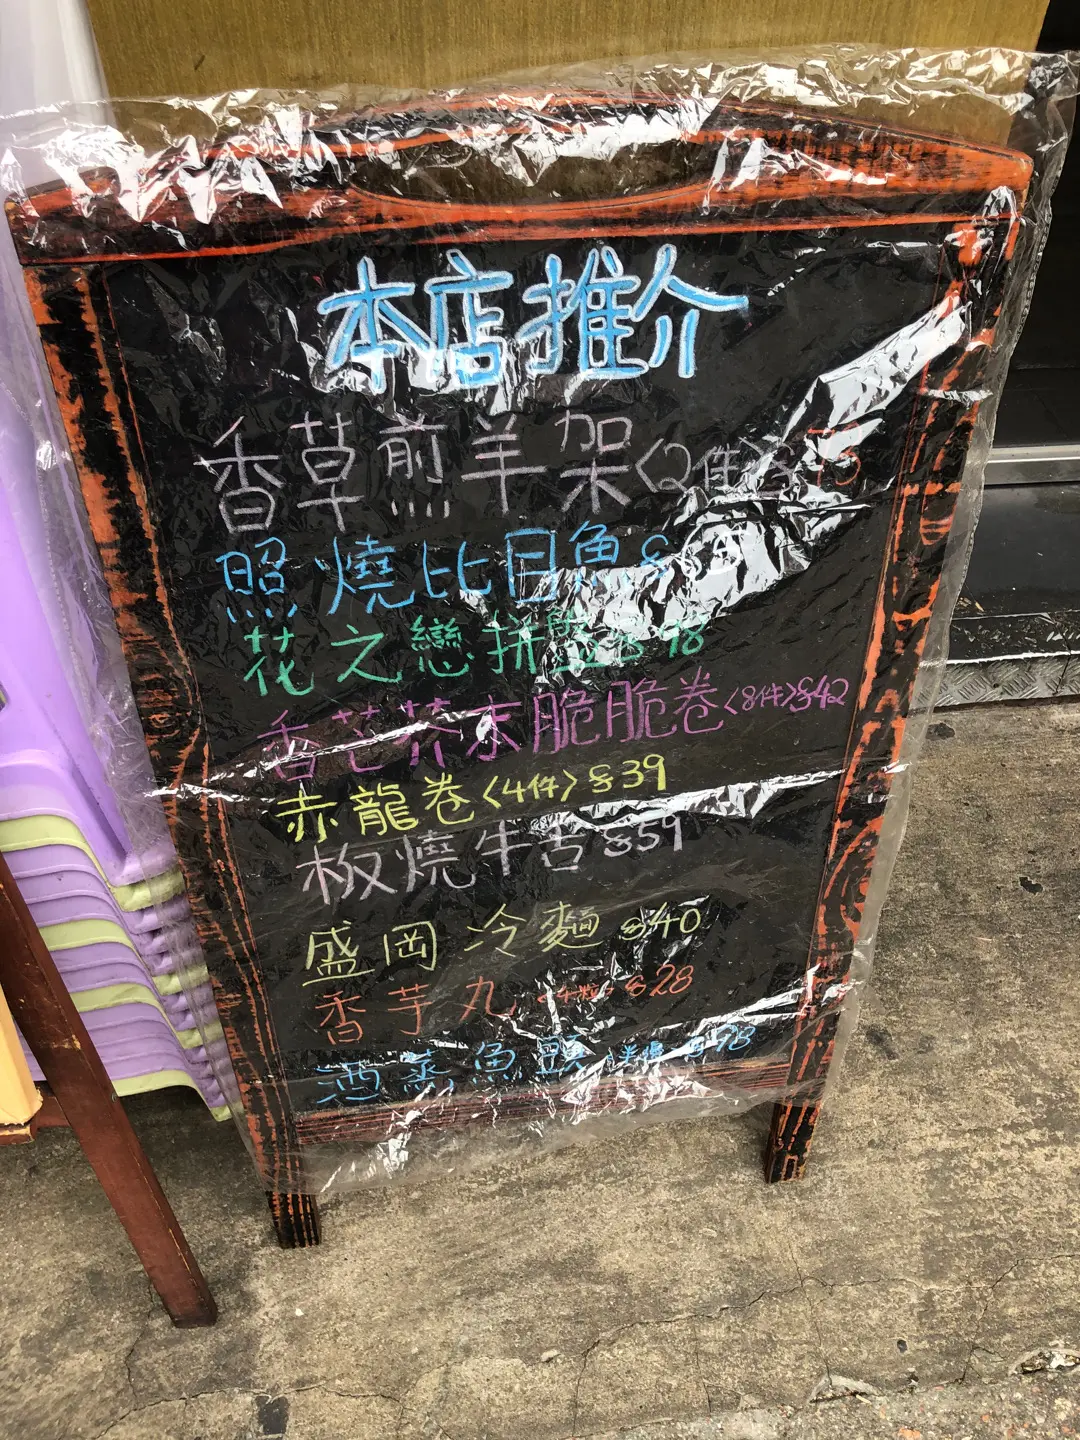 本店推介
香草煎羊架<2隻>
照燒比目魚
花之戀拼盤$98
香芒芥末脆脆卷<8件>$42
赤龍卷<4件>$39
板燒牛舌$59
盛岡冷麵$40
香芋丸<4粒>$28
酒蒸魚頭